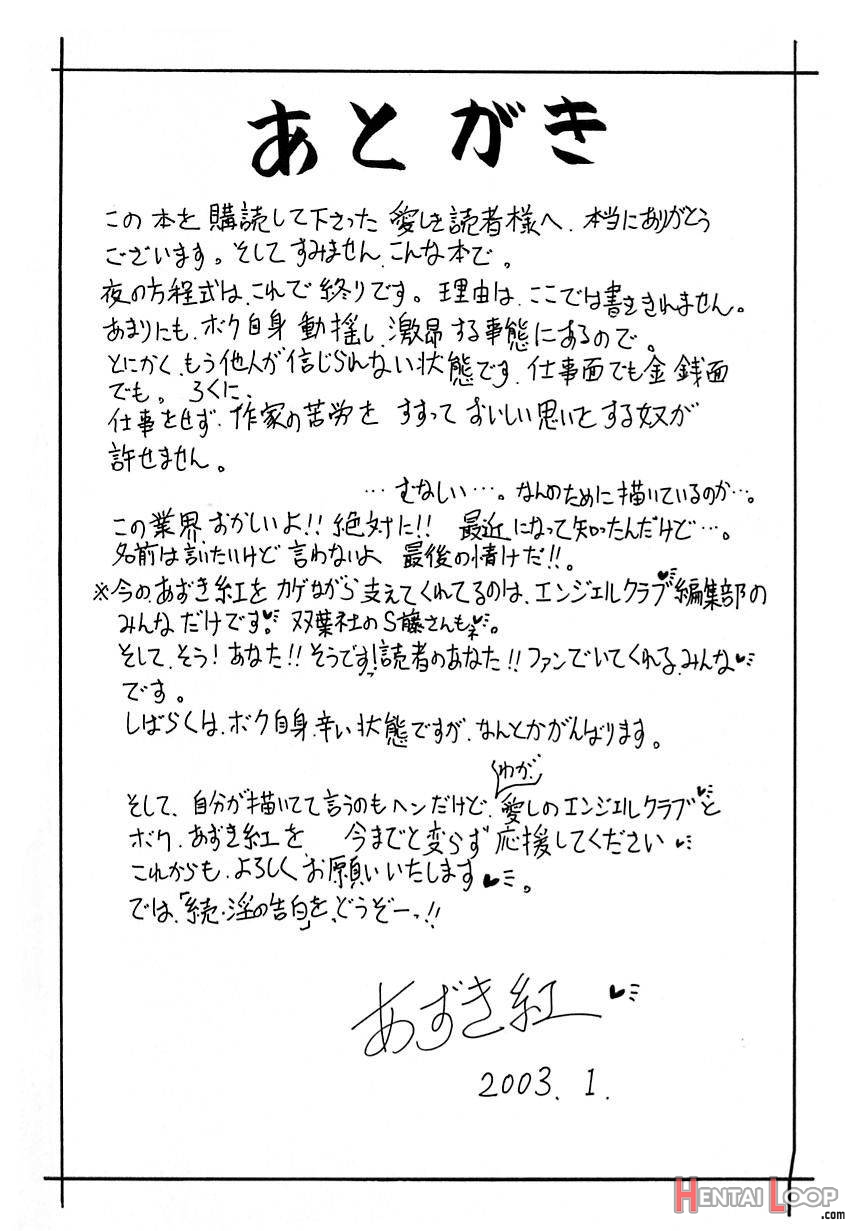 あとがき
この本を購読して下さった愛しき読者様へ、本当にありがとう
ございます。そしてすみません、こんな本で。
夜の方程式は、これで終りです。理由は、ここでは書ききれません。
あまりにも、ボク自身動揺し、激昂する事態にあるので。
とにかく、もう他人が信じられない状態です、仕事面でも金銭面
でも。ろくに、
仕事をせず、作家の苦労をすすっておいしい思いをする奴が
許せません。
…むなしい…。なんのために描いているのか…。
この業界、おかしいよ!!絶対に!!最近になって知ったんだけど…。
名前は言いたいけど言わないよ 最後の情けだ!!。
※今の、あずき紅をカゲながら支えてくれてるのは、エンジェルクラブ♥編集部の
みんなだけです♥。双葉社のS藤さんもネ♥。
そして、そう!あなた!!そうです!読者のあなた!!ファンでいてくれる、みんな♥
です。
しばらくは、ボク自身、辛い状態ですが、なんとかがんばります。
わが、
そして、自分が描いてて言うのもヘンだけど、愛しのエンジェルクラブ♥と
ボク、あずき紅を、今までと変らず応援してください♥
これからも、よろしくお願いいたします♥。
では、「続・淫の告白」を、どうぞーっ!!
あずき紅♥
2003.1.
HENTAI LOOP
.com